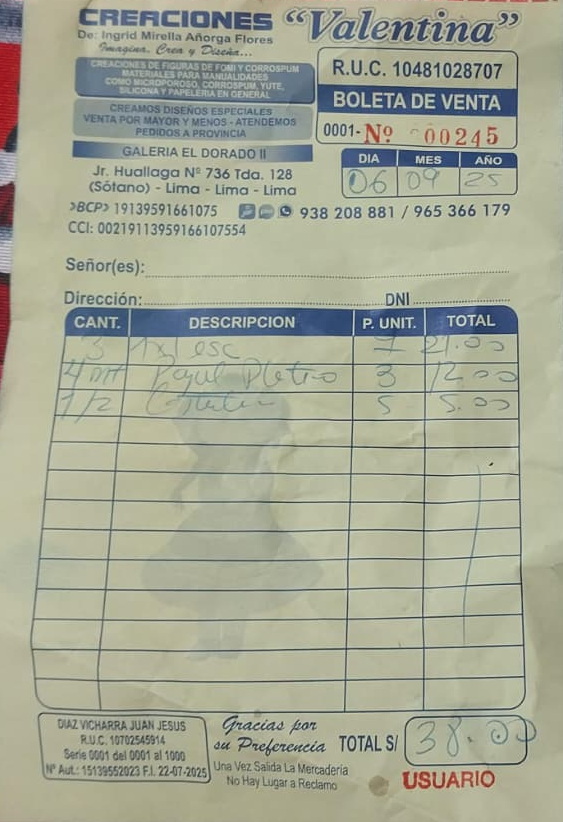 CREACIONES "Valentina"
De: Ingrid Mirella Añorga Flores
Imagina, Crea y Diseña...
CREACIONES DE FIGURAS DE FOMI Y CORROSPUM
MATERIALES PARA MANUALIDADES
COMO MICROPOROSO, CORROSPUM, YUTE,
SILICONA Y PAPELERIA EN GENERAL
CREAMOS DISEÑOS ESPECIALES
VENTA POR MAYOR Y MENOS - ATENDEMOS
PEDIDOS A PROVINCIA
GALERIA EL DORADO II
Jr. Huallaga Nº 736 Tda. 128
(Sótano) - Lima - Lima - Lima
R.U.C. 10481028707
BOLETA DE VENTA
0001- Nº 00245
DIA MES AÑO
06 09 25
>BCP> 19139591661075 938 208 881 / 965 366 179
CCI: 00219113959166107554
Señor(es):
Dirección: DNI
CANT. DESCRIPCION P. UNIT. TOTAL
3 7 21.00
4 mt 3 12.00
1/2 5 5.00
DIAZ VICHARRA JUAN JESUS
R.U.C. 10702545914
Serie 0001 del 0001 al 1000
Nº Aut.: 15139552023 F.I. 22-07-2025
Gracias por
su Preferencia
Una Vez Salida La Mercadería
No Hay Lugar a Reclamo
TOTAL S/ 38.00
USUARIO